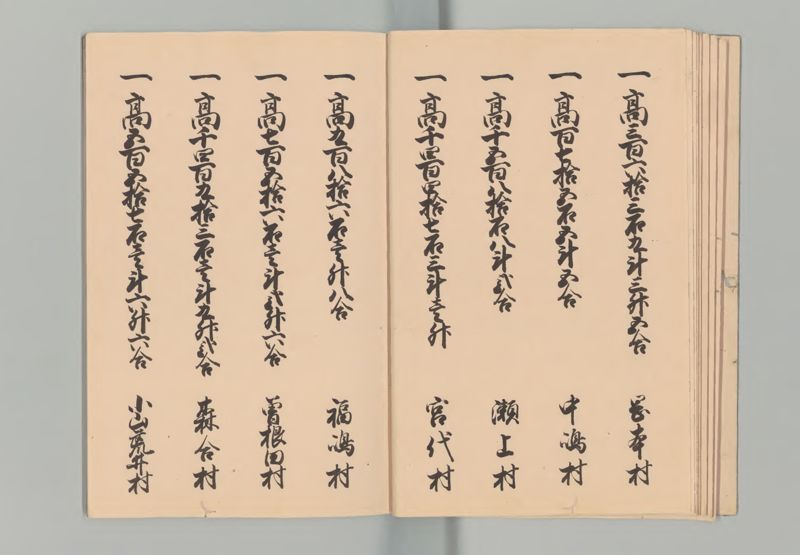 一 高三百六拾三石九斗三升五合 岡本村
一 高百七拾五石五斗五合 中嶋村
一 高千五百八拾石八斗弐合 瀬上村
一 高千四百四拾七石三斗壱升 宮代村
一 高九百八拾六石壱升八合 福嶋村
一 高七百五拾六石壱斗弐升六合 曽根田村
一 高千四百九拾三石壱斗九升弐合 森合村
一 高五百五拾七石壱斗六升六合 小山荒井村